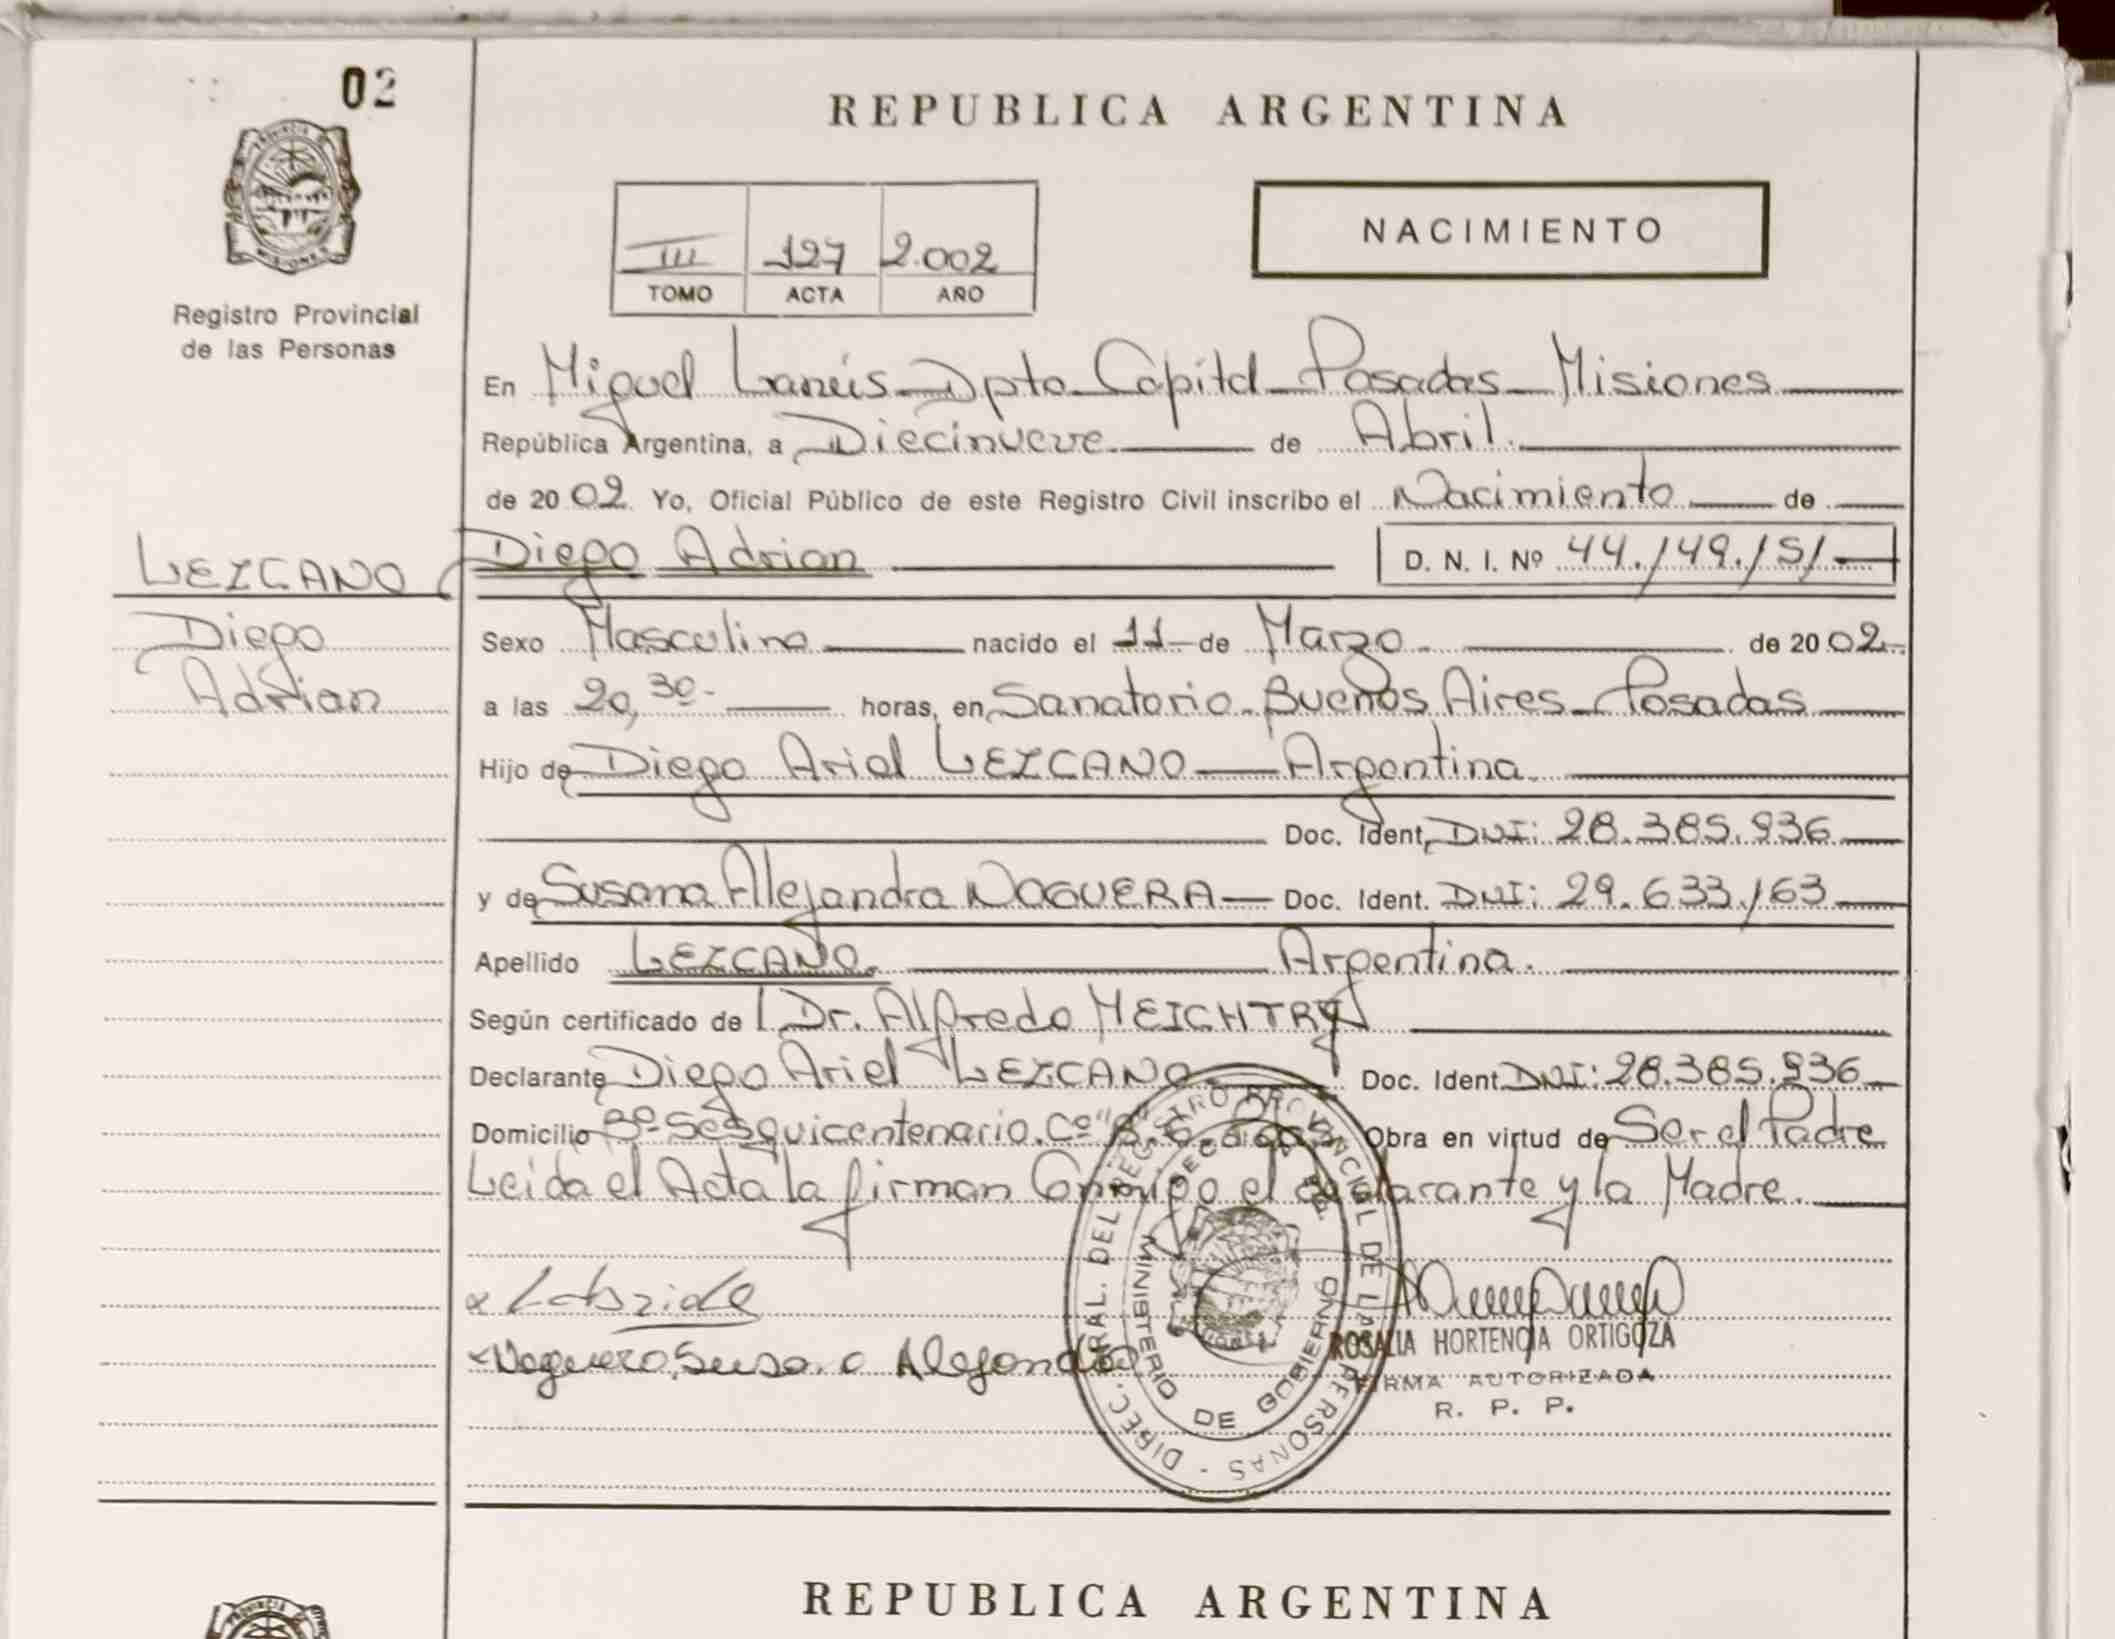 02
REPUBLICA ARGENTINA
NACIMIENTO
III 127 2.002
TOMO ACTA AÑO
PROVINCIA DE MISIONES
Registro Provincial
de las Personas
En Miguel Lanús Dpto Capital Posadas Misiones
República Argentina, a Diecinueve de Abril.
de 2002. Yo, Oficial Público de este Registro Civil inscribo el Nacimiento de
LEZCANO Diego Adrian D. N. I. Nº 44.149.151
Diego
Adrian
Sexo Masculino nacido el 11 de Marzo. de 2002.
a las 20,30 horas, en Sanatorio Buenos Aires Posadas
Hijo de Diego Ariel LEZCANO Argentina.
Doc. Ident. DNI: 28.385.936
y de Susana Alejandra NOGUERA Doc. Ident. DNI: 29.633.163
Apellido LEZCANO. Argentina.
Según certificado de l Dr. Alfredo MEICHTRY
Declarante Diego Ariel LEZCANO Doc. Ident. DNI: 28.385.936
Domicilio Bº Sesquicentenario. Cº Obra en virtud de Ser el Padre
Leida el Acta la firman Conmigo el declarante y la Madre.
Noguera Susana Alejandra
DIREC. GRAL. DEL REGISTRO PROVINCIAL DE LAS PERSONAS
MINISTERIO DE GOBIERNO
ROSALIA HORTENCIA ORTIGOZA
FIRMA AUTORIZADA
R. P. P.
REPUBLICA ARGENTINA
PROVINCIA